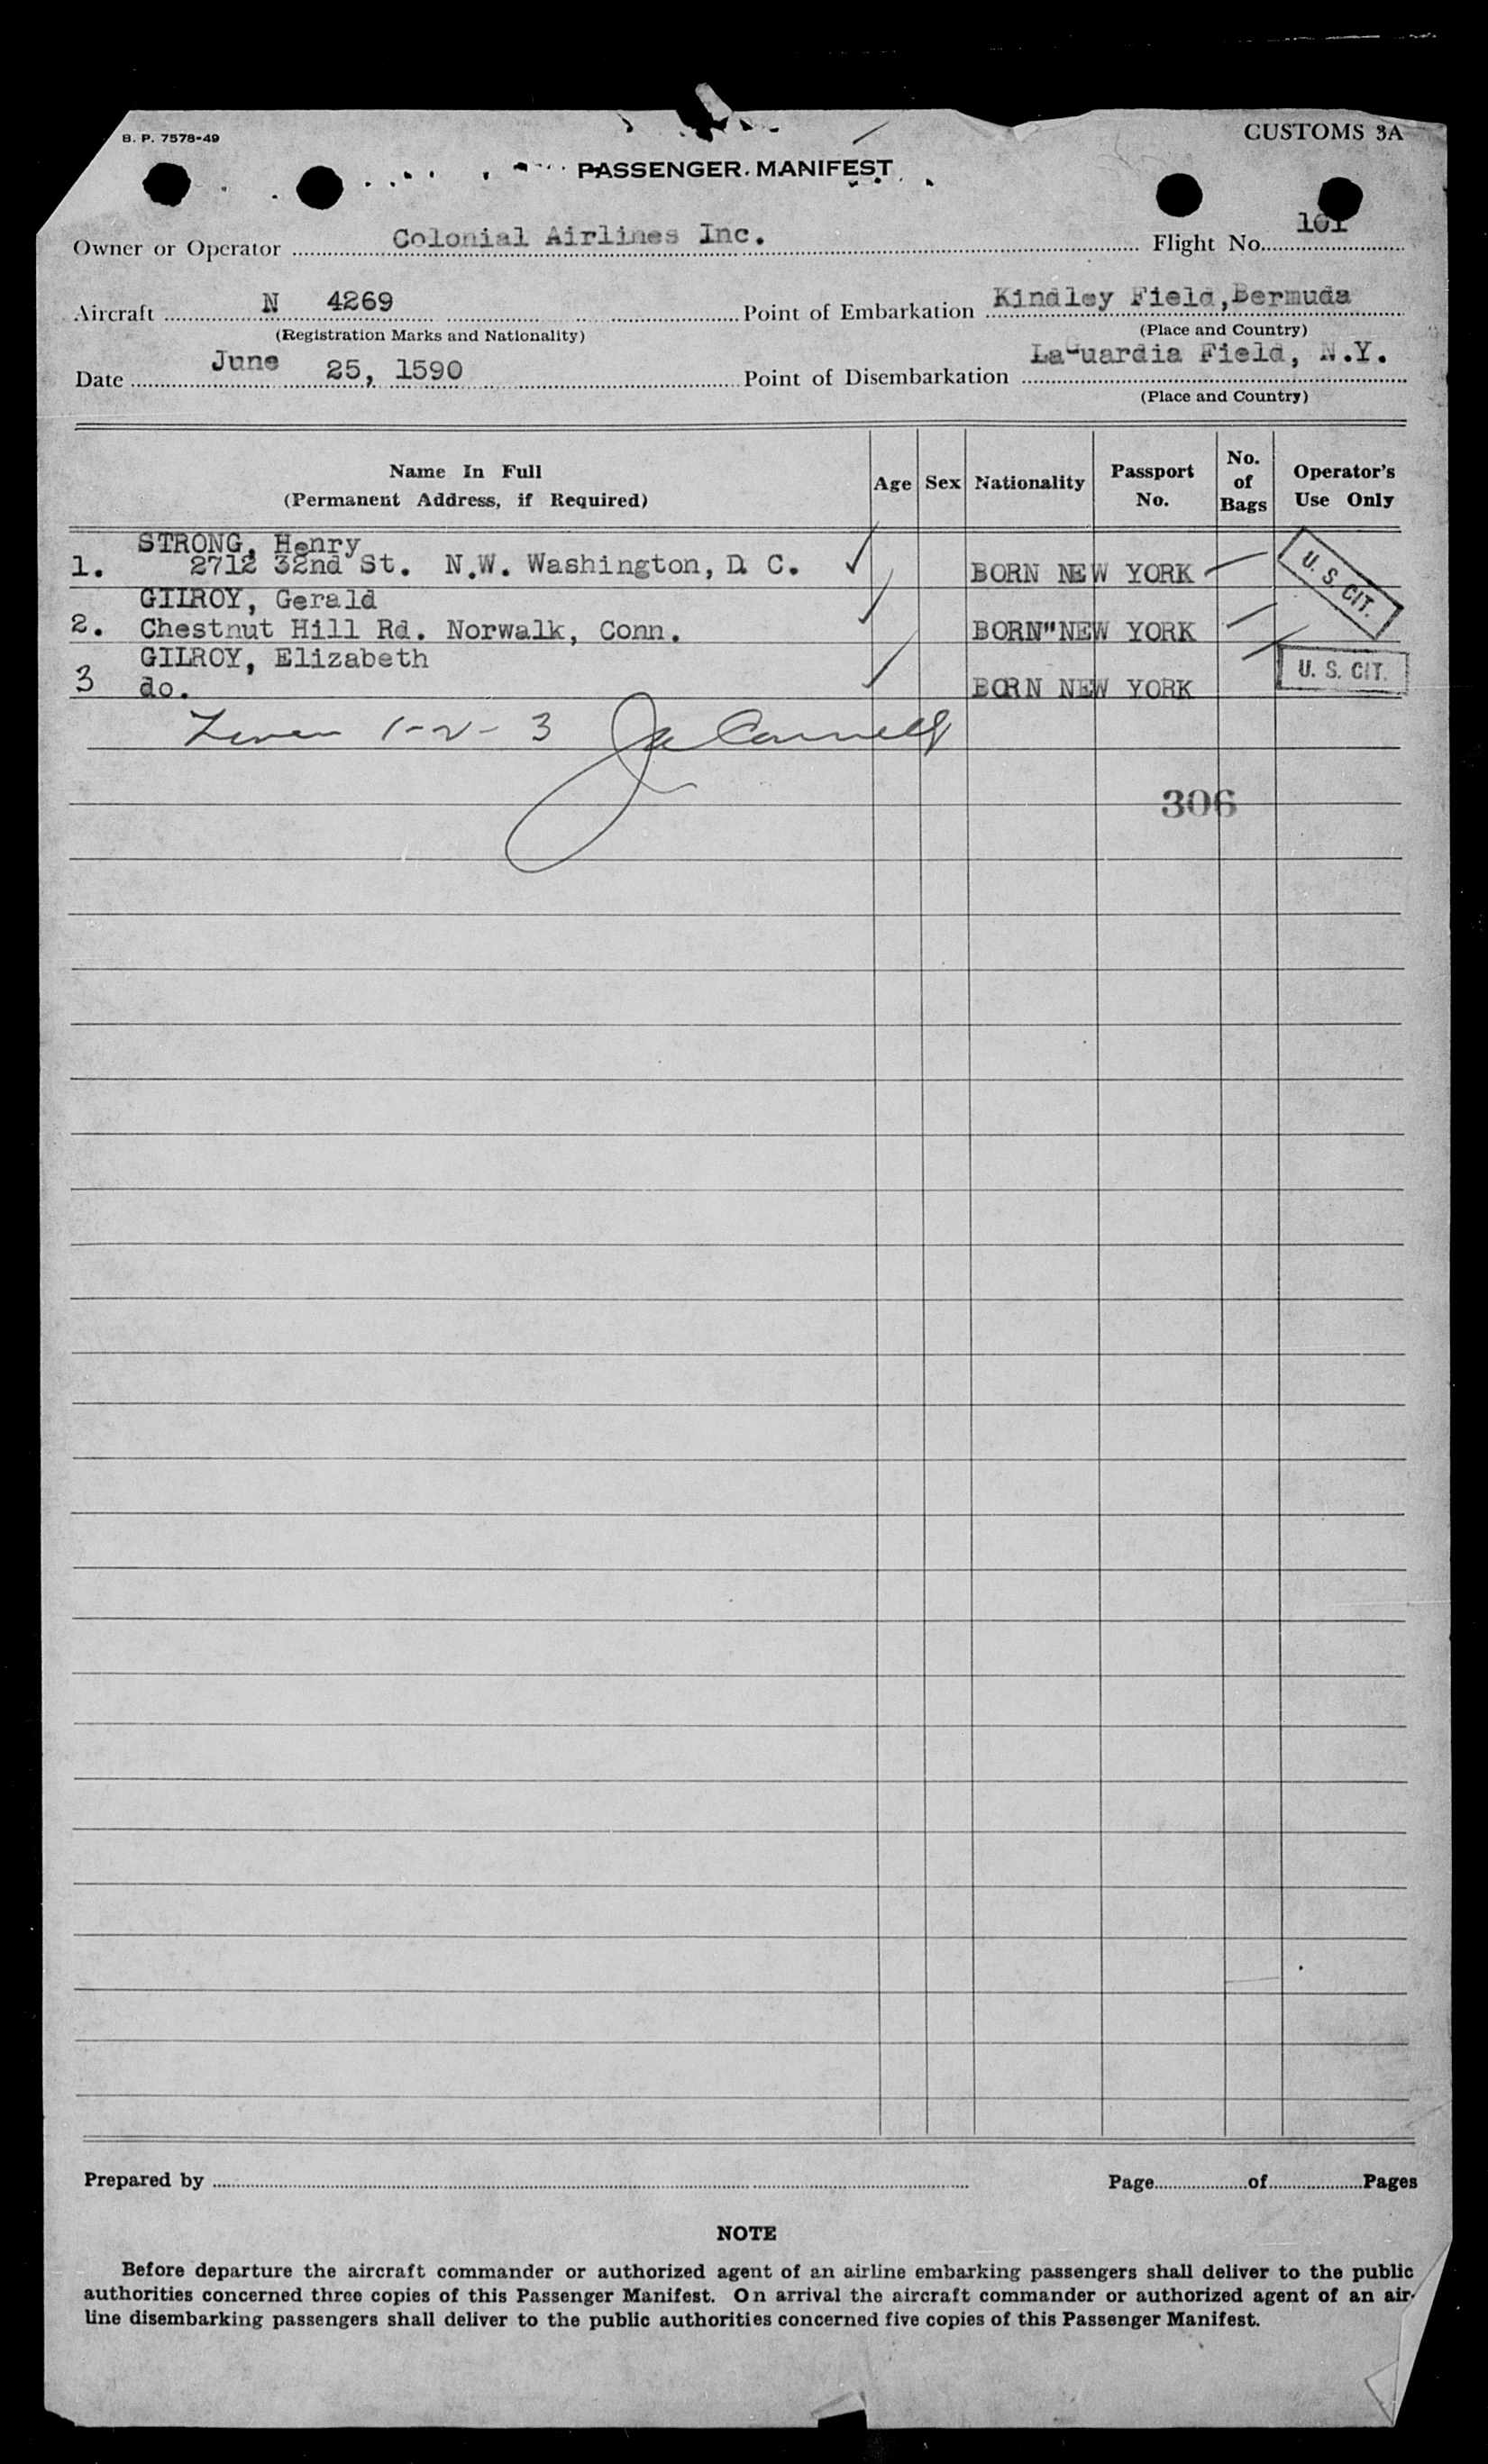 B. P. 7578-49
CUSTOMS 3A
PASSENGER MANIFEST
Owner or Operator Colonial Airlines Inc. Flight No. 101
Aircraft N 4269 Point of Embarkation Kindley Field,Bermuda
(Registration Marks and Nationality) (Place and Country)
Date June 25, 1590 Point of Disembarkation LaGuardia Field, N.Y.
(Place and Country)
Name In Full (Permanent Address, if Required) Age Sex Nationality Passport No. No. of Bags Operator's Use Only
STRONG, Henry
1. 2712 32nd St. N.W. Washington, D C. BORN NEW YORK U. S. CIT.
GILROY, Gerald
2. Chestnut Hill Rd. Norwalk, Conn. BORN"NEW YORK
GILROY, Elizabeth
3 do. BORN NEW YORK U. S. CIT.
1-2-3
306
Prepared by Page of Pages
NOTE
Before departure the aircraft commander or authorized agent of an airline embarking passengers shall deliver to the public
authorities concerned three copies of this Passenger Manifest. On arrival the aircraft commander or authorized agent of an air-
line disembarking passengers shall deliver to the public authorities concerned five copies of this Passenger Manifest.